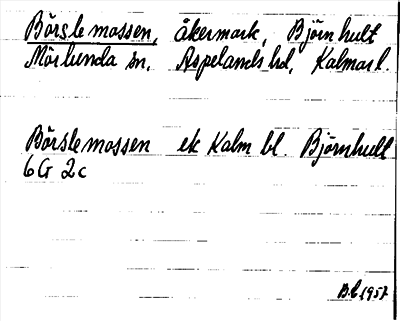 Börsle mossen, åkermark, Björnhult
Mörlunda sn. Aspelands hd, Kalmar l.
Börslemossen ek Kalm bl. Björnhult
6G 2c
1957